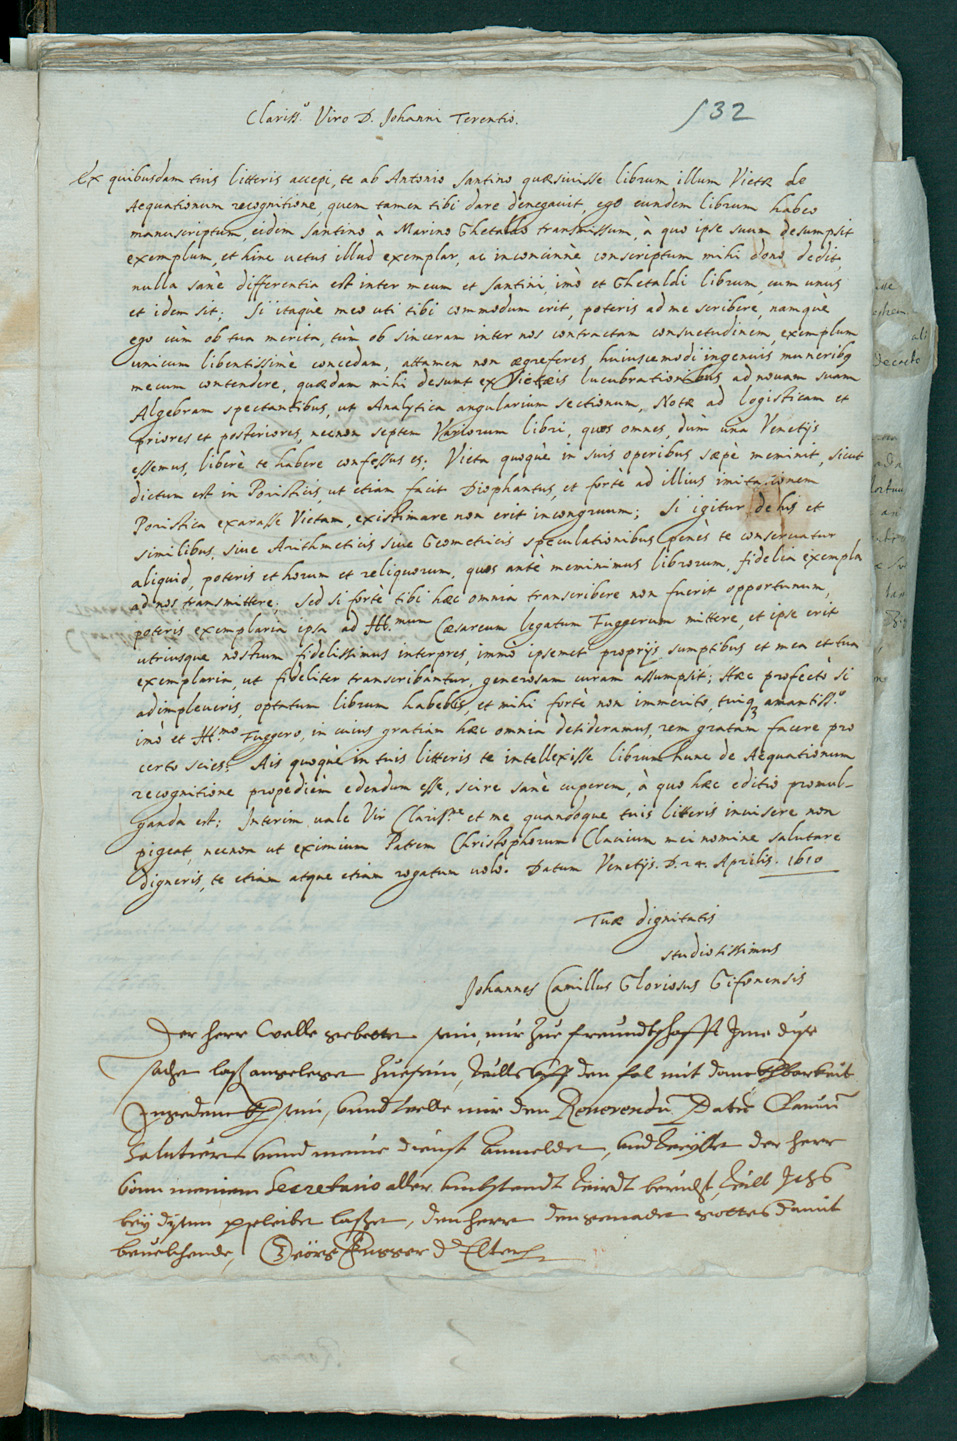 532
Clariss.º Viro D. Johanni Terentio.
Ex quibusdam tuis litteris accepi, te ab Antonio Santino quæsiuisse librum illum Vietæ de
Aequationum recognitione, quem tamen tibi dare denegauit, ego eundem librum habeo
manuscriptum, eidem Santino à Marino Ghetaldo transmissum, à quo ipse suum desumpsit
exemplum, et hinc uetus illud exemplar, ac inconcinnè conscriptum mihi dono dedit,
nulla sanè differentia est inter meum et Santini, imò et Ghetaldi librum, cum unus
et idem sit; Si itaquè meo uti tibi commodum erit, poteris ad me scribere, namquè
ego cùm ob tua merita, tùm ob sinceram inter nos contractam consuetudinem, exemplum
unicum libentissimè concedam, attamen non ægreferes, huiuscemodi ingenuis muneribq
mecum contendere, quædam mihi desunt ex Vietæis lucubrationibus, ad nouam suam
Algebram spectantibus, ut Analytica angularium sectionum, Notæ ad logisticam et
priores et posteriores, necnon septem Variorum libri, quos omnes, dùm unà Venetijs
essemus, liberè te habere confessus es; Vieta quoquè in suis operibus sæpè meminit, sicut
dictum est in Poristicis, ut etiam facit Diophantus, et fortè ad illius imitationem
Poristica exarasse Vietam, existimare non erit incongruum; Si igitur de his et
similibus, siue Arithmeticis siue Geometricis speculationibus penès te conseruatur
aliquid, poteris et horum et reliquorum, quos antè meminimus librorum, fidelia exempla
ad nos transmittere; Sed si fortè tibi hæc omnia transcribere non fuerit opportunum,
poteris exemplaria ipsa ad Ill.mum Cæsareum legatum Fuggerum mittere, et ipse erit
utriusque nostrum fidelissimus interpres, immò ipsemet proprijs sumptibus et mea et tua
exemplaria, ut fideliter transcribantur, generosam curam assumpsit; Hæc profectò si
adimpleueris, optatum librum habebis, et mihi fortè non immeritò, tuiq3 amantiss.º
imò et Ill.mo Fuggero, in cuius gratiam hæc omnia desideramus, rem gratam facere pro
certo scies; Ais quoquè in tuis litteris te intellexisse librum hunc de Aequationum
recognitione propediem edendum esse, scire sanè cuperem, à quo hæc editio promul-
ganda est; Interim uale Vir Clariss.me et me quandoque tuis litteris inuisere non
pigeat, necnon ut eximium Patrem Christophorum Clauium mei nomine salutare
digneris, te etiam atque etiam rogatum uolo. Datum Venetijs. D. 24. Aprilis. 1610
Tuæ dignitatis
studiosissimus
Johannes Camillus Gloriosus Gifonensis
Der herr welle gebetten sein, mir zue freundtschafft Ime dise
sach laß angelegen zuesein, den fal mit danckhbarkeit
Ingedenckh sein, vnnd welle mir den Reuerendũ Patrẽ Clauiũ
salutiern vnnd meine dienst anmelden, der herr
vonn meinem Secretario aller vmbstandt bericht, Ichs
bey disem pleiben lassen, den herrn den genaden gottes damit
beuelchende, Geörg Fugger d Elter